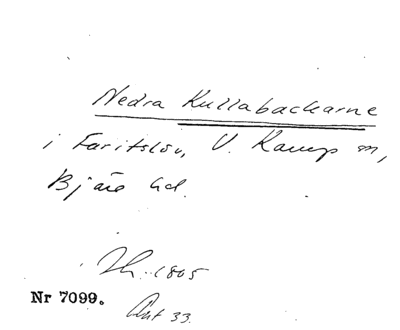 Nedra Kullabackarne
i Faritslöv, V. Karup sn,
Bjäre hd.
Th. 1805
Nr 7099. Akt 33.